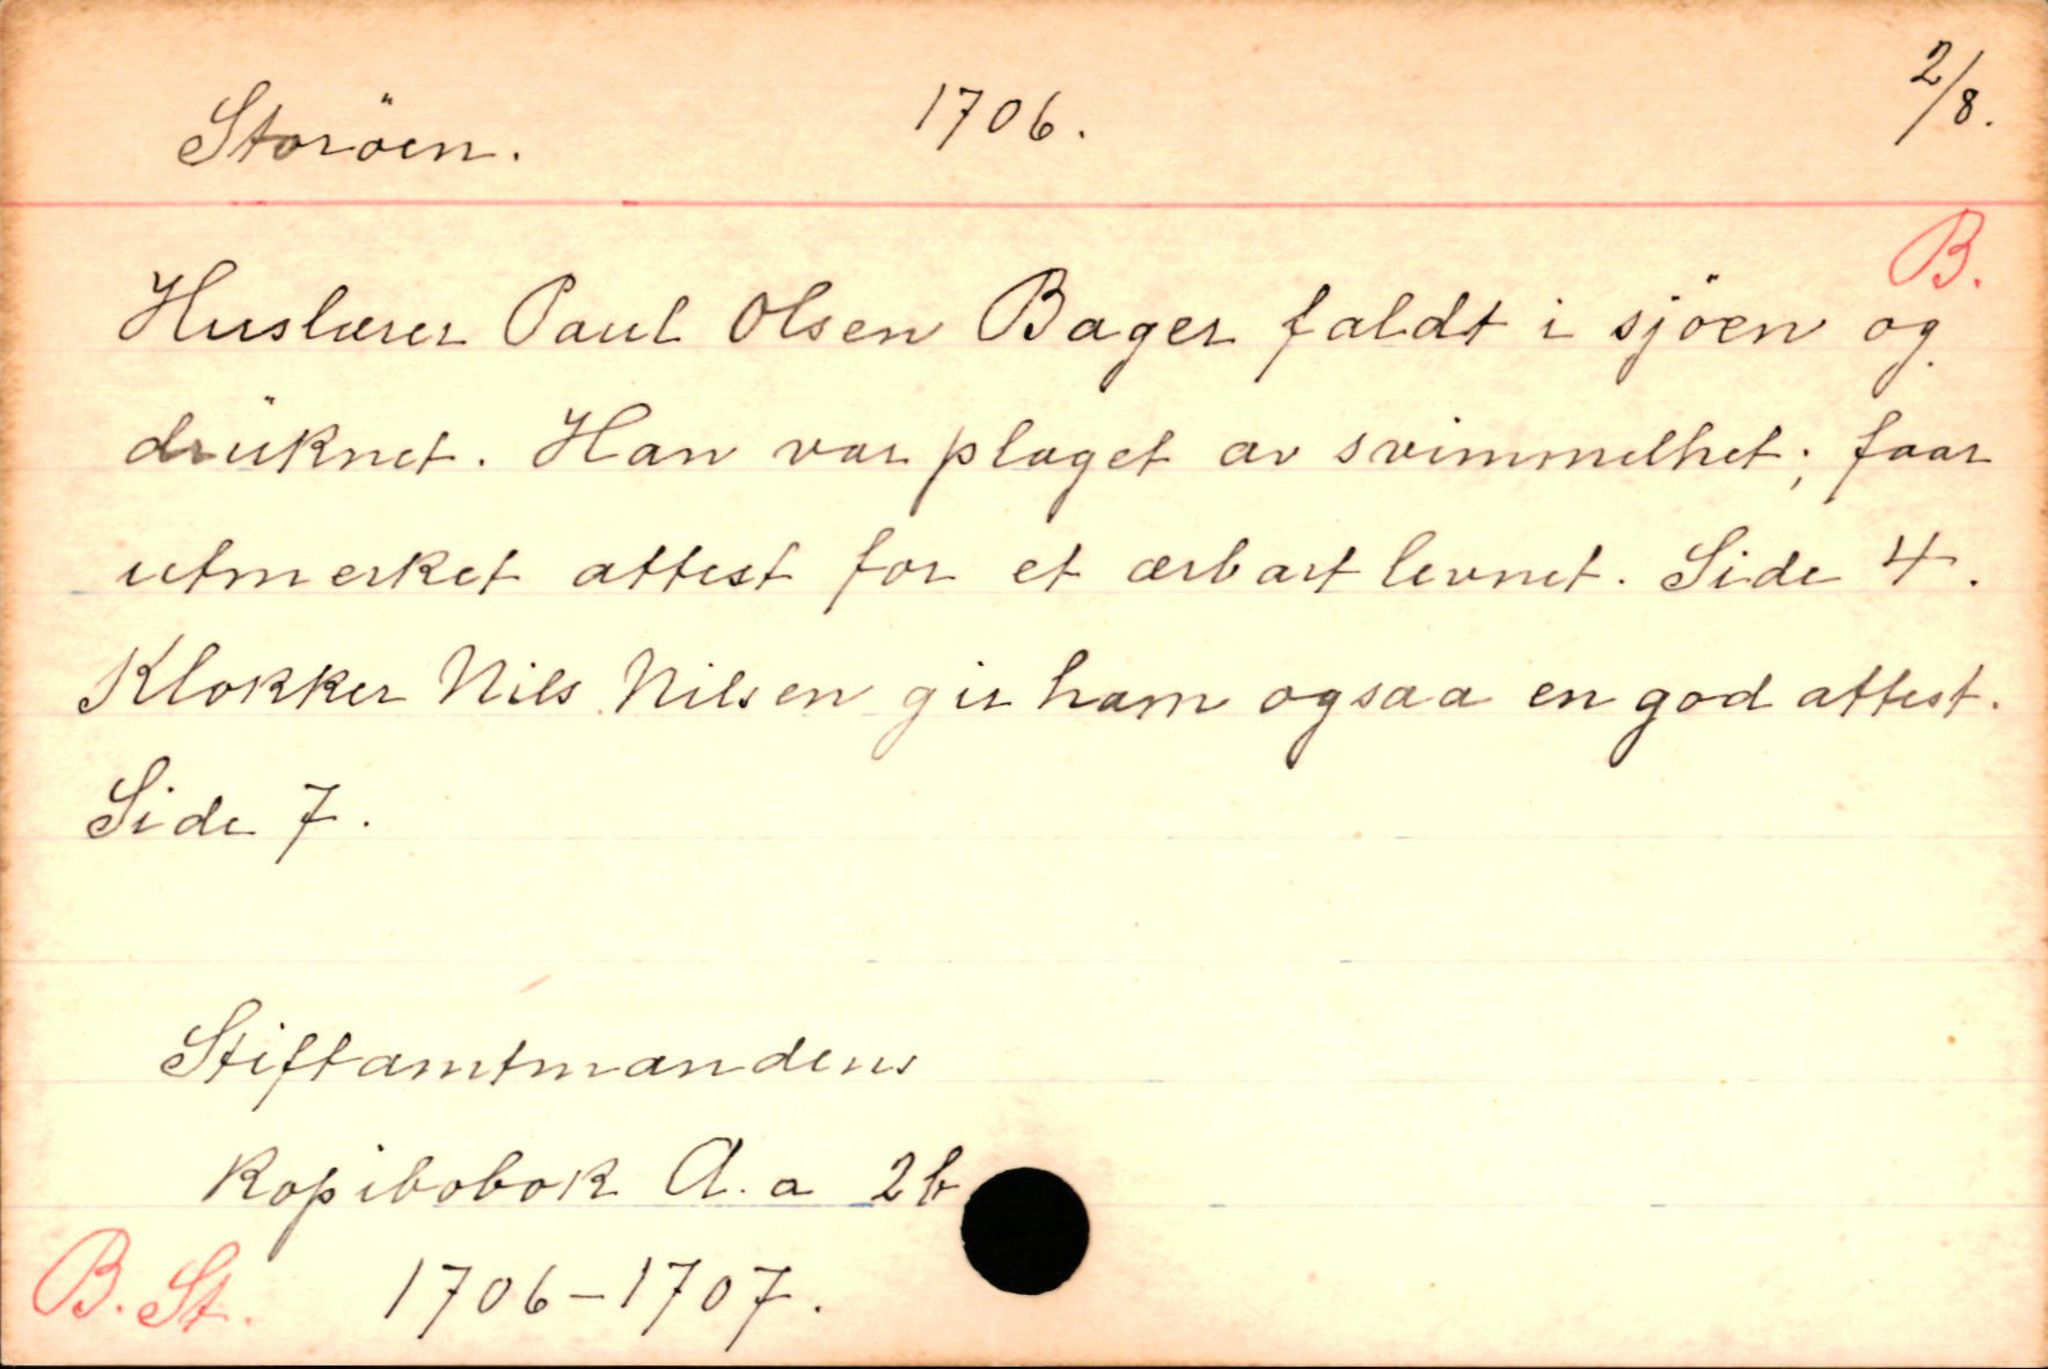 Storöen. 1706. 2/8.
B.
Huslærer Paul Olsen Bager faldt i sjöen og
drüknet. Han var plaget av svimmelhet; faar
utmerket attest for et ærbart levnet. Side 4.
Klokker Nils Nilsen gir ham ogsaa en god attest.
Side 7.
Stiftamtmandens
Kopibobok A.a 2b
B. St. 1706-1707.